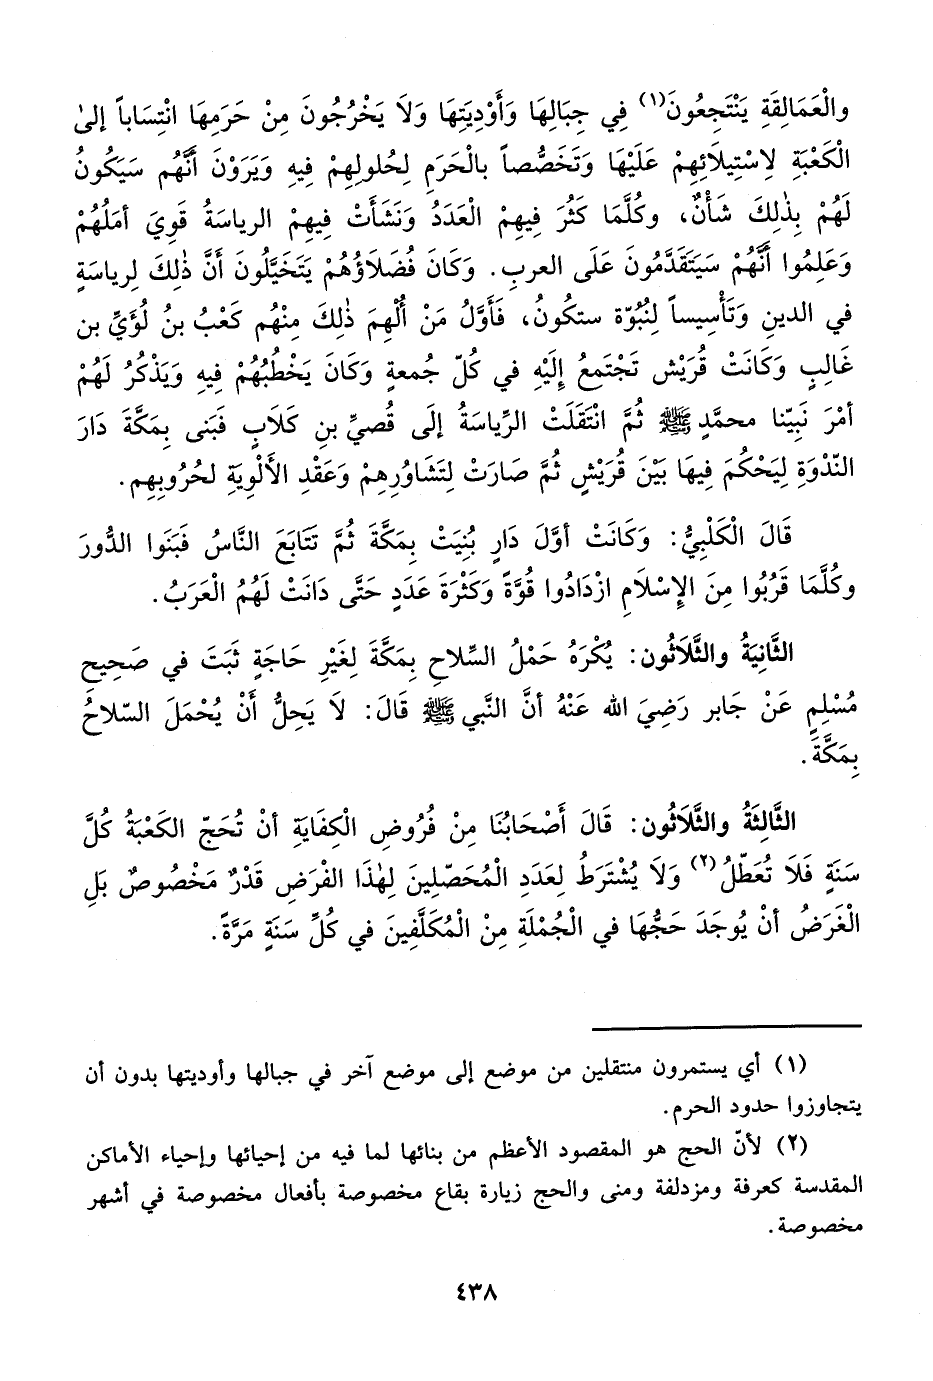 والْعَمَالِقَةِ يَنْتَجِعُونَ(١) فِي جِبَالِهَا وَأَوْدِيَتِهَا وَلَا يَخْرُجُونَ مِنْ حَرَمِهَا انْتِسَاباً إلىٰ
الْكَعْبَةِ لِاسْتِيلَائِهِمْ عَلَيْهَا وَتَخَصُّصاً بالْحَرَمِ لِحُلولِهِمْ فِيهِ وَيَرَوْنَ أَنَّهُم سَيَكُونُ
لَهُمْ بِذٰلِكَ شَأْنٌ، وكُلَّمَا كَثُرَ فِيهِمْ الْعَدَدُ وَنَشَأَتْ فِيهِمْ الرياسَةُ قَوِيَ أمَلُهُمْ
وَعَلِمُوا أَنَّهُمْ سَيَتَقَدَّمُونَ عَلَى العربِ. وَكَانَ فُضَلَاؤُهُمْ يَتَخَيَّلُونَ أَنَّ ذٰلِكَ لِرياسَةٍ
في الدينِ وَتَأْسِيساً لِنُبُوّة ستكُونُ، فَأَوَّلُ مَنْ أُلْهِمَ ذٰلِكَ مِنْهُم كَعْبُ بنُ لُؤَيِّ بن
غَالِبٍ وَكَانَتْ قُرَيْش تَجْتَمِعُ إِلَيْهِ في كُلّ جُمعةٍ وَكَانَ يَخْطُبُهُمْ فِيهِ وَيَذْكُرُ لَهُمْ
أمْرَ نَبِيّنا محمَّدٍ ﷺ ثُمَّ انْتَقَلَتْ الرِّياسَةُ إلَى قُصيِّ بنِ كَلَابٍ فَبَنى بِمَكَّةَ دَارَ
النّدْوَةِ لِيَحْكُمَ فِيهَا بَيْنَ قُرَيْشٍ ثُمَّ صَارَتْ لِتَشَاوُرِهِمْ وَعَقْدِ الأَلْوِيَةِ لحُرُوبِهِم.
قَالَ الْكَلْبِيُّ: وَكَانَتْ أوَّلَ دَارٍ بُنِيَتْ بِمَكَّةَ ثُمَّ تَتَابَعَ النَّاسُ فَبَنَوا الدُّورَ
وكُلَّمَا قَرُبُوا مِنَ الإِسْلَامِ ازْدَادُوا قُوَّةً وَكَثْرَةَ عَدَدٍ حَتَّى دَانَتْ لَهُمُ الْعَرَبُ.
الثَّانِيَةُ والثَّلَاثُون: يُكْرَهُ حَمْلُ السِّلاحِ بِمَكَّةَ لِغَيْرِ حَاجَةٍ ثَبَتَ في صَحِيحِ
مُسْلِمٍ عَنْ جَابر رَضِيَ الله عَنْهُ أنَّ النَّبي ﷺ قَالَ: لَا يَحِلُّ أَنْ يُحْمَلَ السّلاحُ
بِمَكَّةَ.
الثَّالِثَةُ والثَّلَاثُون: قَالَ أَصْحَابُنَا مِنْ فُرُوضِ الْكِفَايَةِ أنْ تُحَجّ الكَعْبَةُ كُلَّ
سَنَةٍ فَلَا تُعَطّلُ(٢) وَلَا يُشْتَرَطُ لِعَدَدِ الْمُحَصّلِينَ لِهٰذَا الفْرَضِ قَدْرٌ مَخْصُوصٌ بَلِ
الْغَرَضُ أنْ يُوجَدَ حَجُّهَا في الْجُمْلَةِ مِنْ الْمُكَلَّفِينَ في كُلِّ سَنَةٍ مَرَّةً.
(١) أي يستمرون منتقلين من موضع إلى موضع آخر في جبالها وأوديتها بدون أن
يتجاوزوا حدود الحرم.
(٢) لأنّ الحج هو المقصود الأعظم من بنائها لما فيه من إحيائها وإحياء الأماكن
المقدسة كعرفة ومزدلفة ومنى والحج زيارة بقاع مخصوصة بأفعال مخصوصة في أشهر
مخصوصة.
٤٣٨